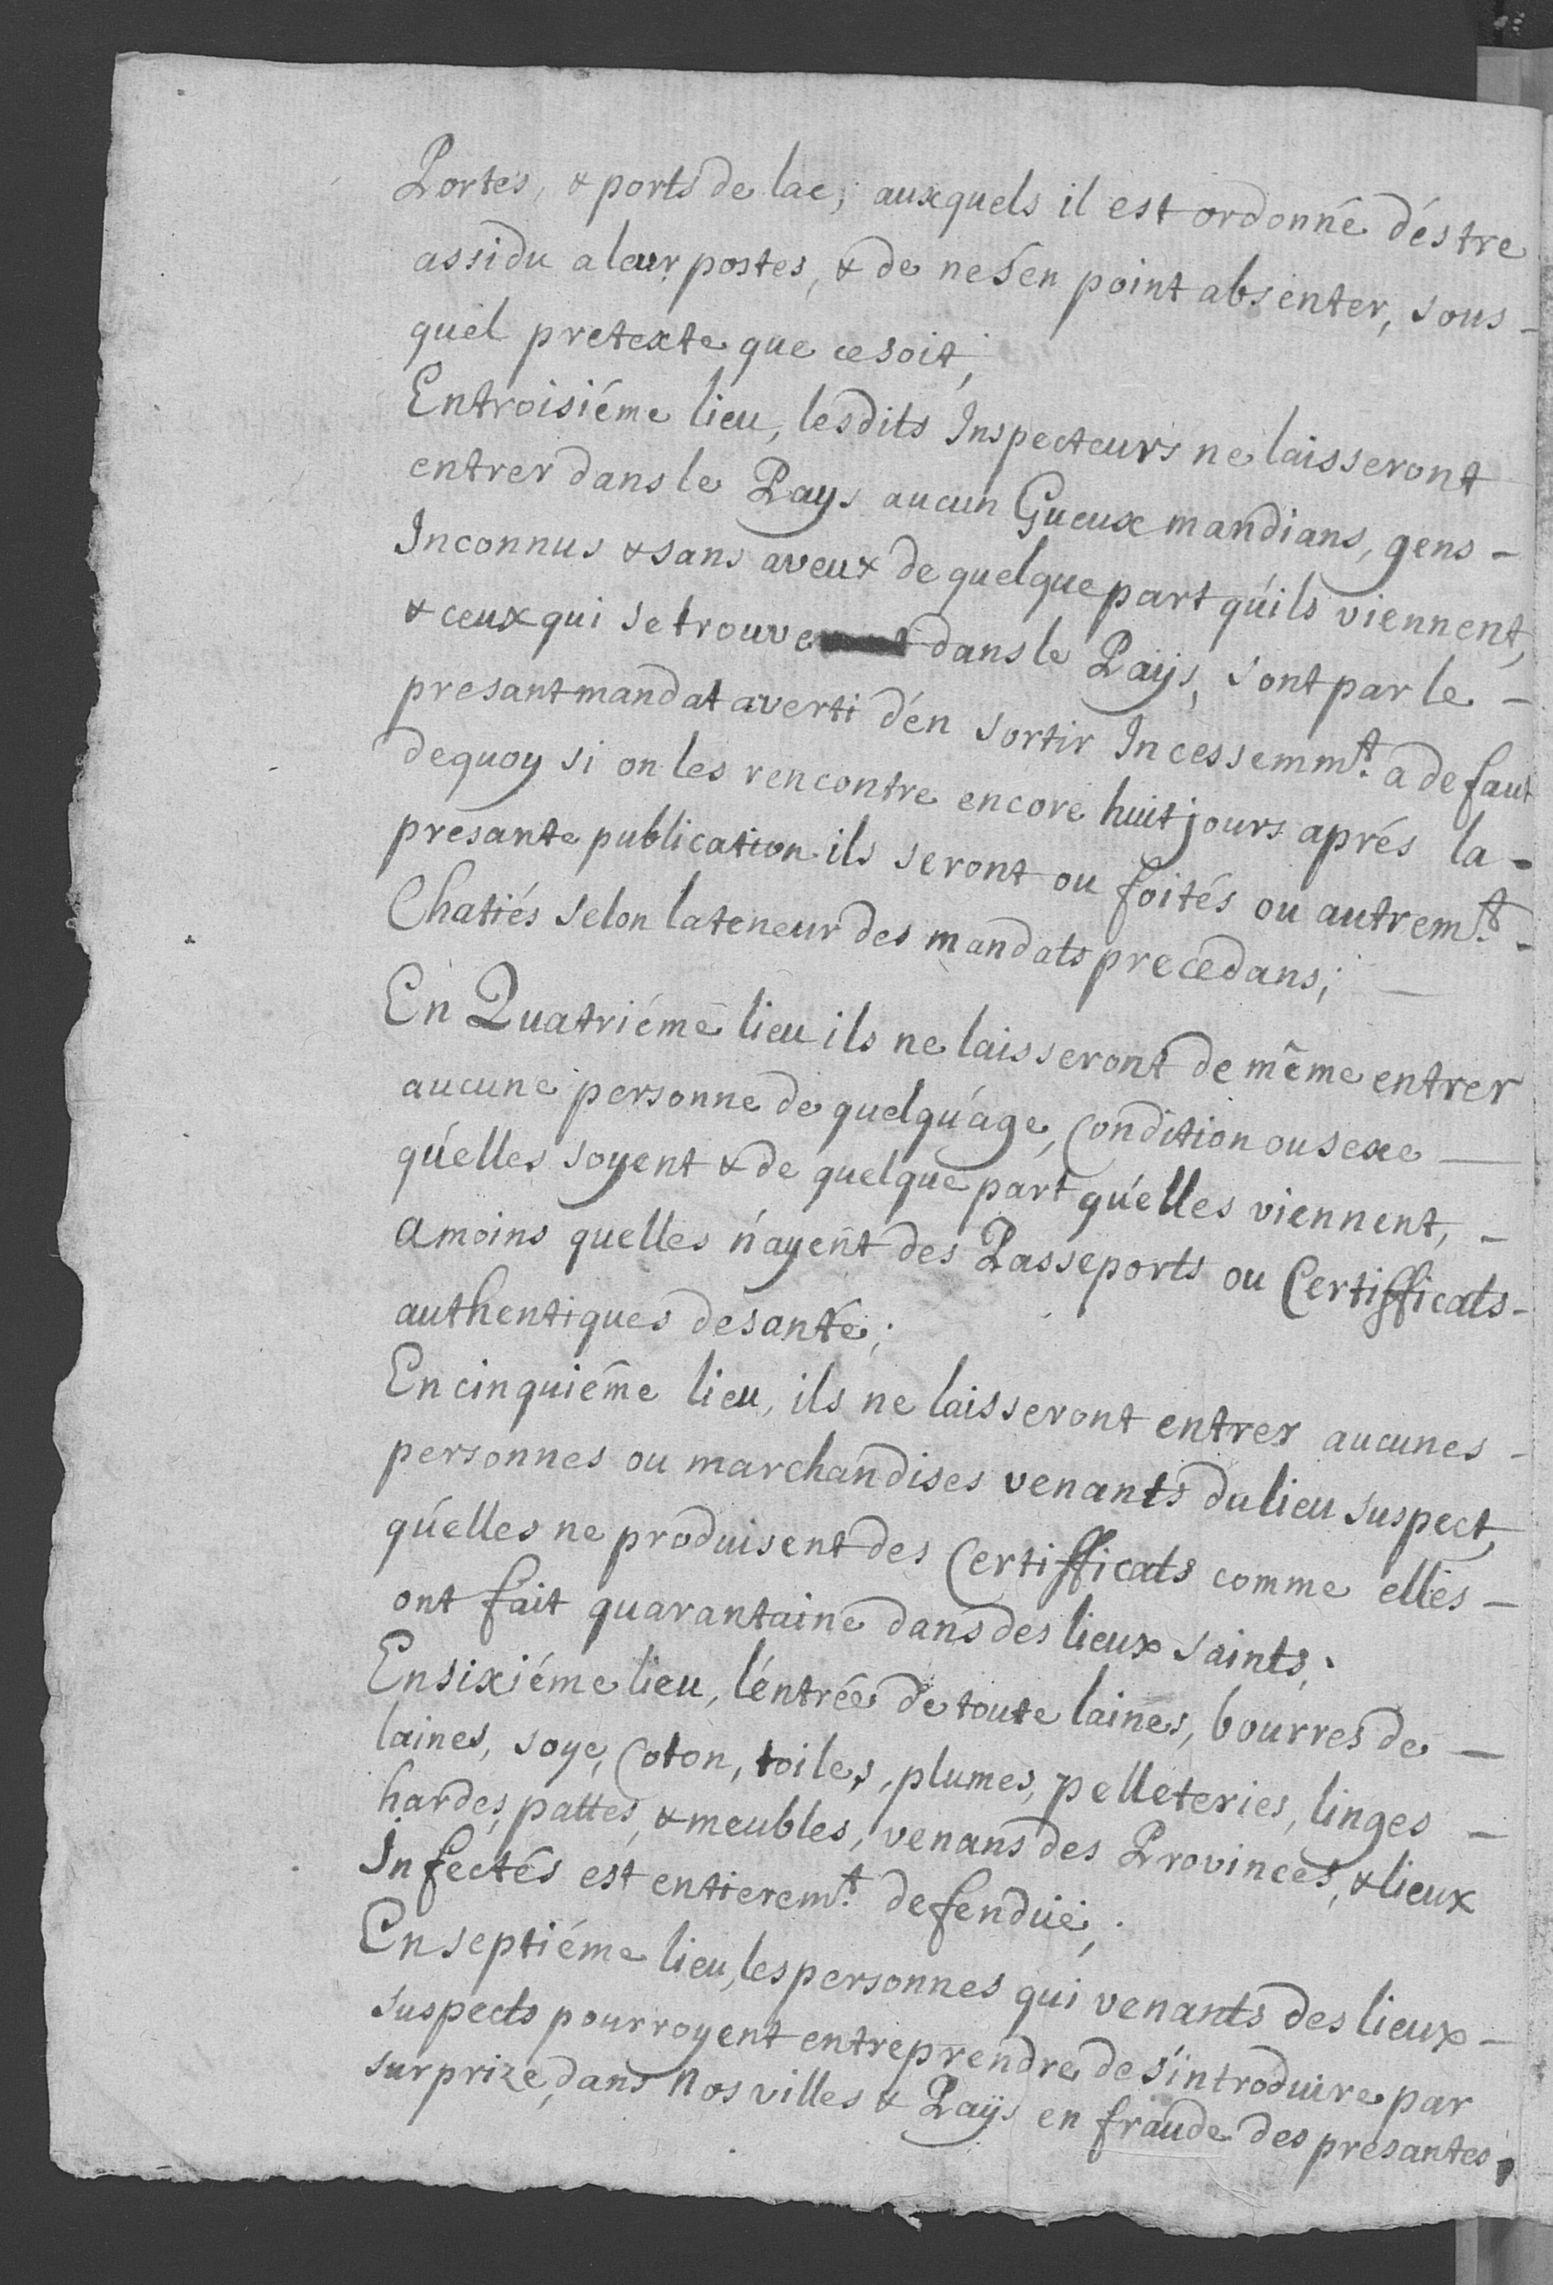 Portes, & ports de lac; auxquels il est ordonné d'éstre
assidu a leur postes, & de ne s'en point absenter, sous -
quel pretexte que ce soit;
En troisiéme lieu, lesdits Inspecteurs ne laisseront
entrer dans le Pays aucun Gueux mandians, gens -
Inconnus & sans aveux de quelque part qu'ils viennent,
& ceux qui se trouve dans le Païjs, sont par le -
presant mandat averti d'én sortir Incessemmt. a defaut
dequoy si on les rencontre encore huit jours aprés la -
presante publication ils seront ou foités ou autremt. -
Chatiés selon la teneur des mandats precedans; —
En Quatriéme lieu ils ne laisseront de même entrer
aucune personne de quelqu'age, Condition ou sexe —
qu'elles soyent & de quelque part qu'elles viennent, -
a moins quelles n'ayent des Passeports ou Certifficats -
authentiques de santé;
En cinquiême lieu, ils ne laisseront entrer aucunes -
personnes ou marchandises venants du lieu suspect,
qu'elles ne produisent des Certifficats comme elles -
ont fait quarantaine dans des lieux saints;
En sixiéme lieu, l'éntrée de toute laines, bourres de —
laines, soye, Coton, toiles, plumes, pelleteries, linges -
hardes, pattes, & meubles, venans des Provinces, & lieux
Infectés est entieremt. defenduë;
En septiéme lieu, les personnes qui venants des lieux -
suspects pourroyent entreprendre de s'introduire par
surprize, dans Nos villes & Païjs en fraude des presantes,